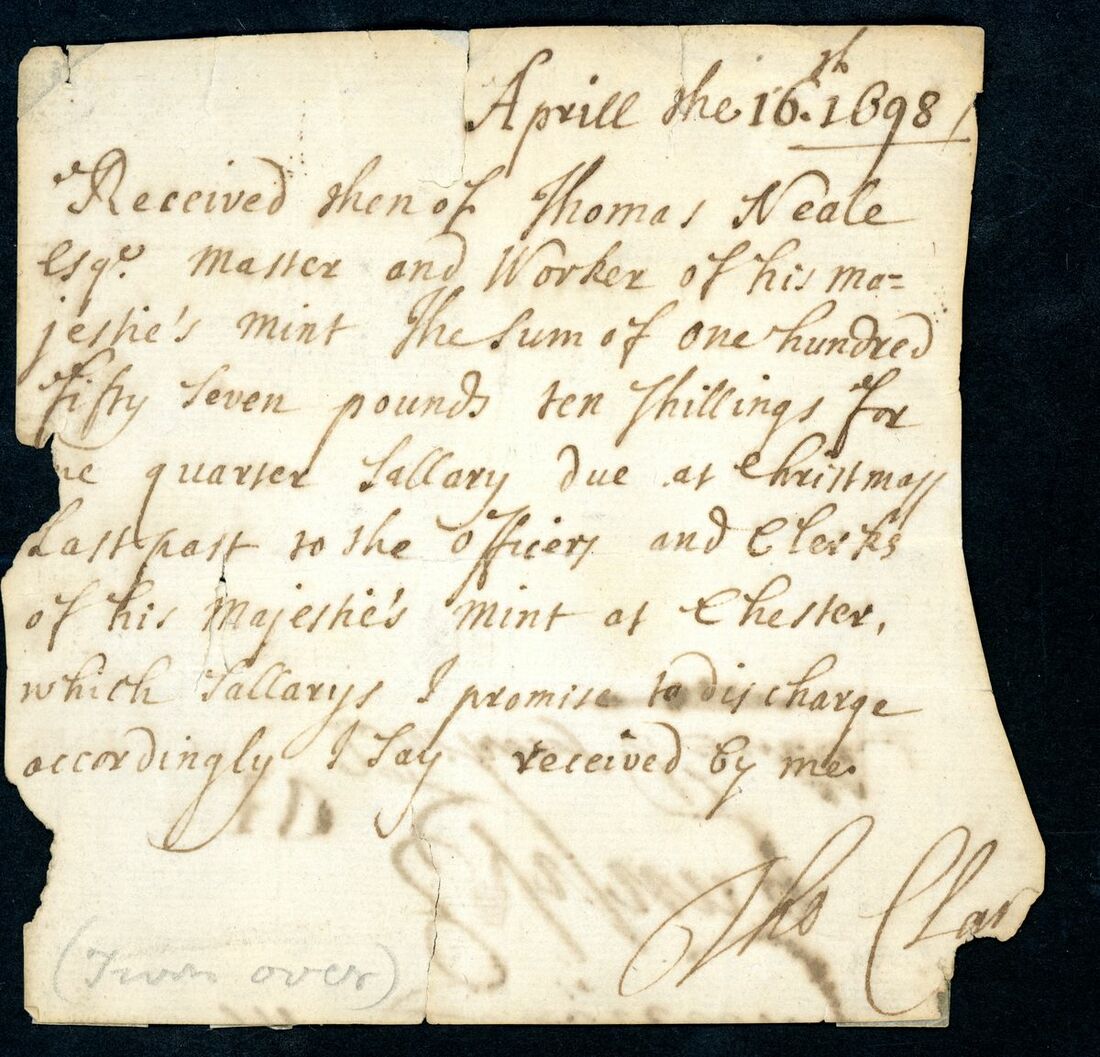 Aprill the 16.th 1698
Received then of Thomas Neale
Esqr. Master and Worker of his ma=
jestie's mint the sum of one hundred
fifty seven pounds ten shillings for
ne quarter Sallary due at Christmass
Last past to the officers and Clerks
of his Majestie's mint at Chester,
which Sallarys I promise to discharge
accordingly I say received by me.
Tho Clar
(Turn over)